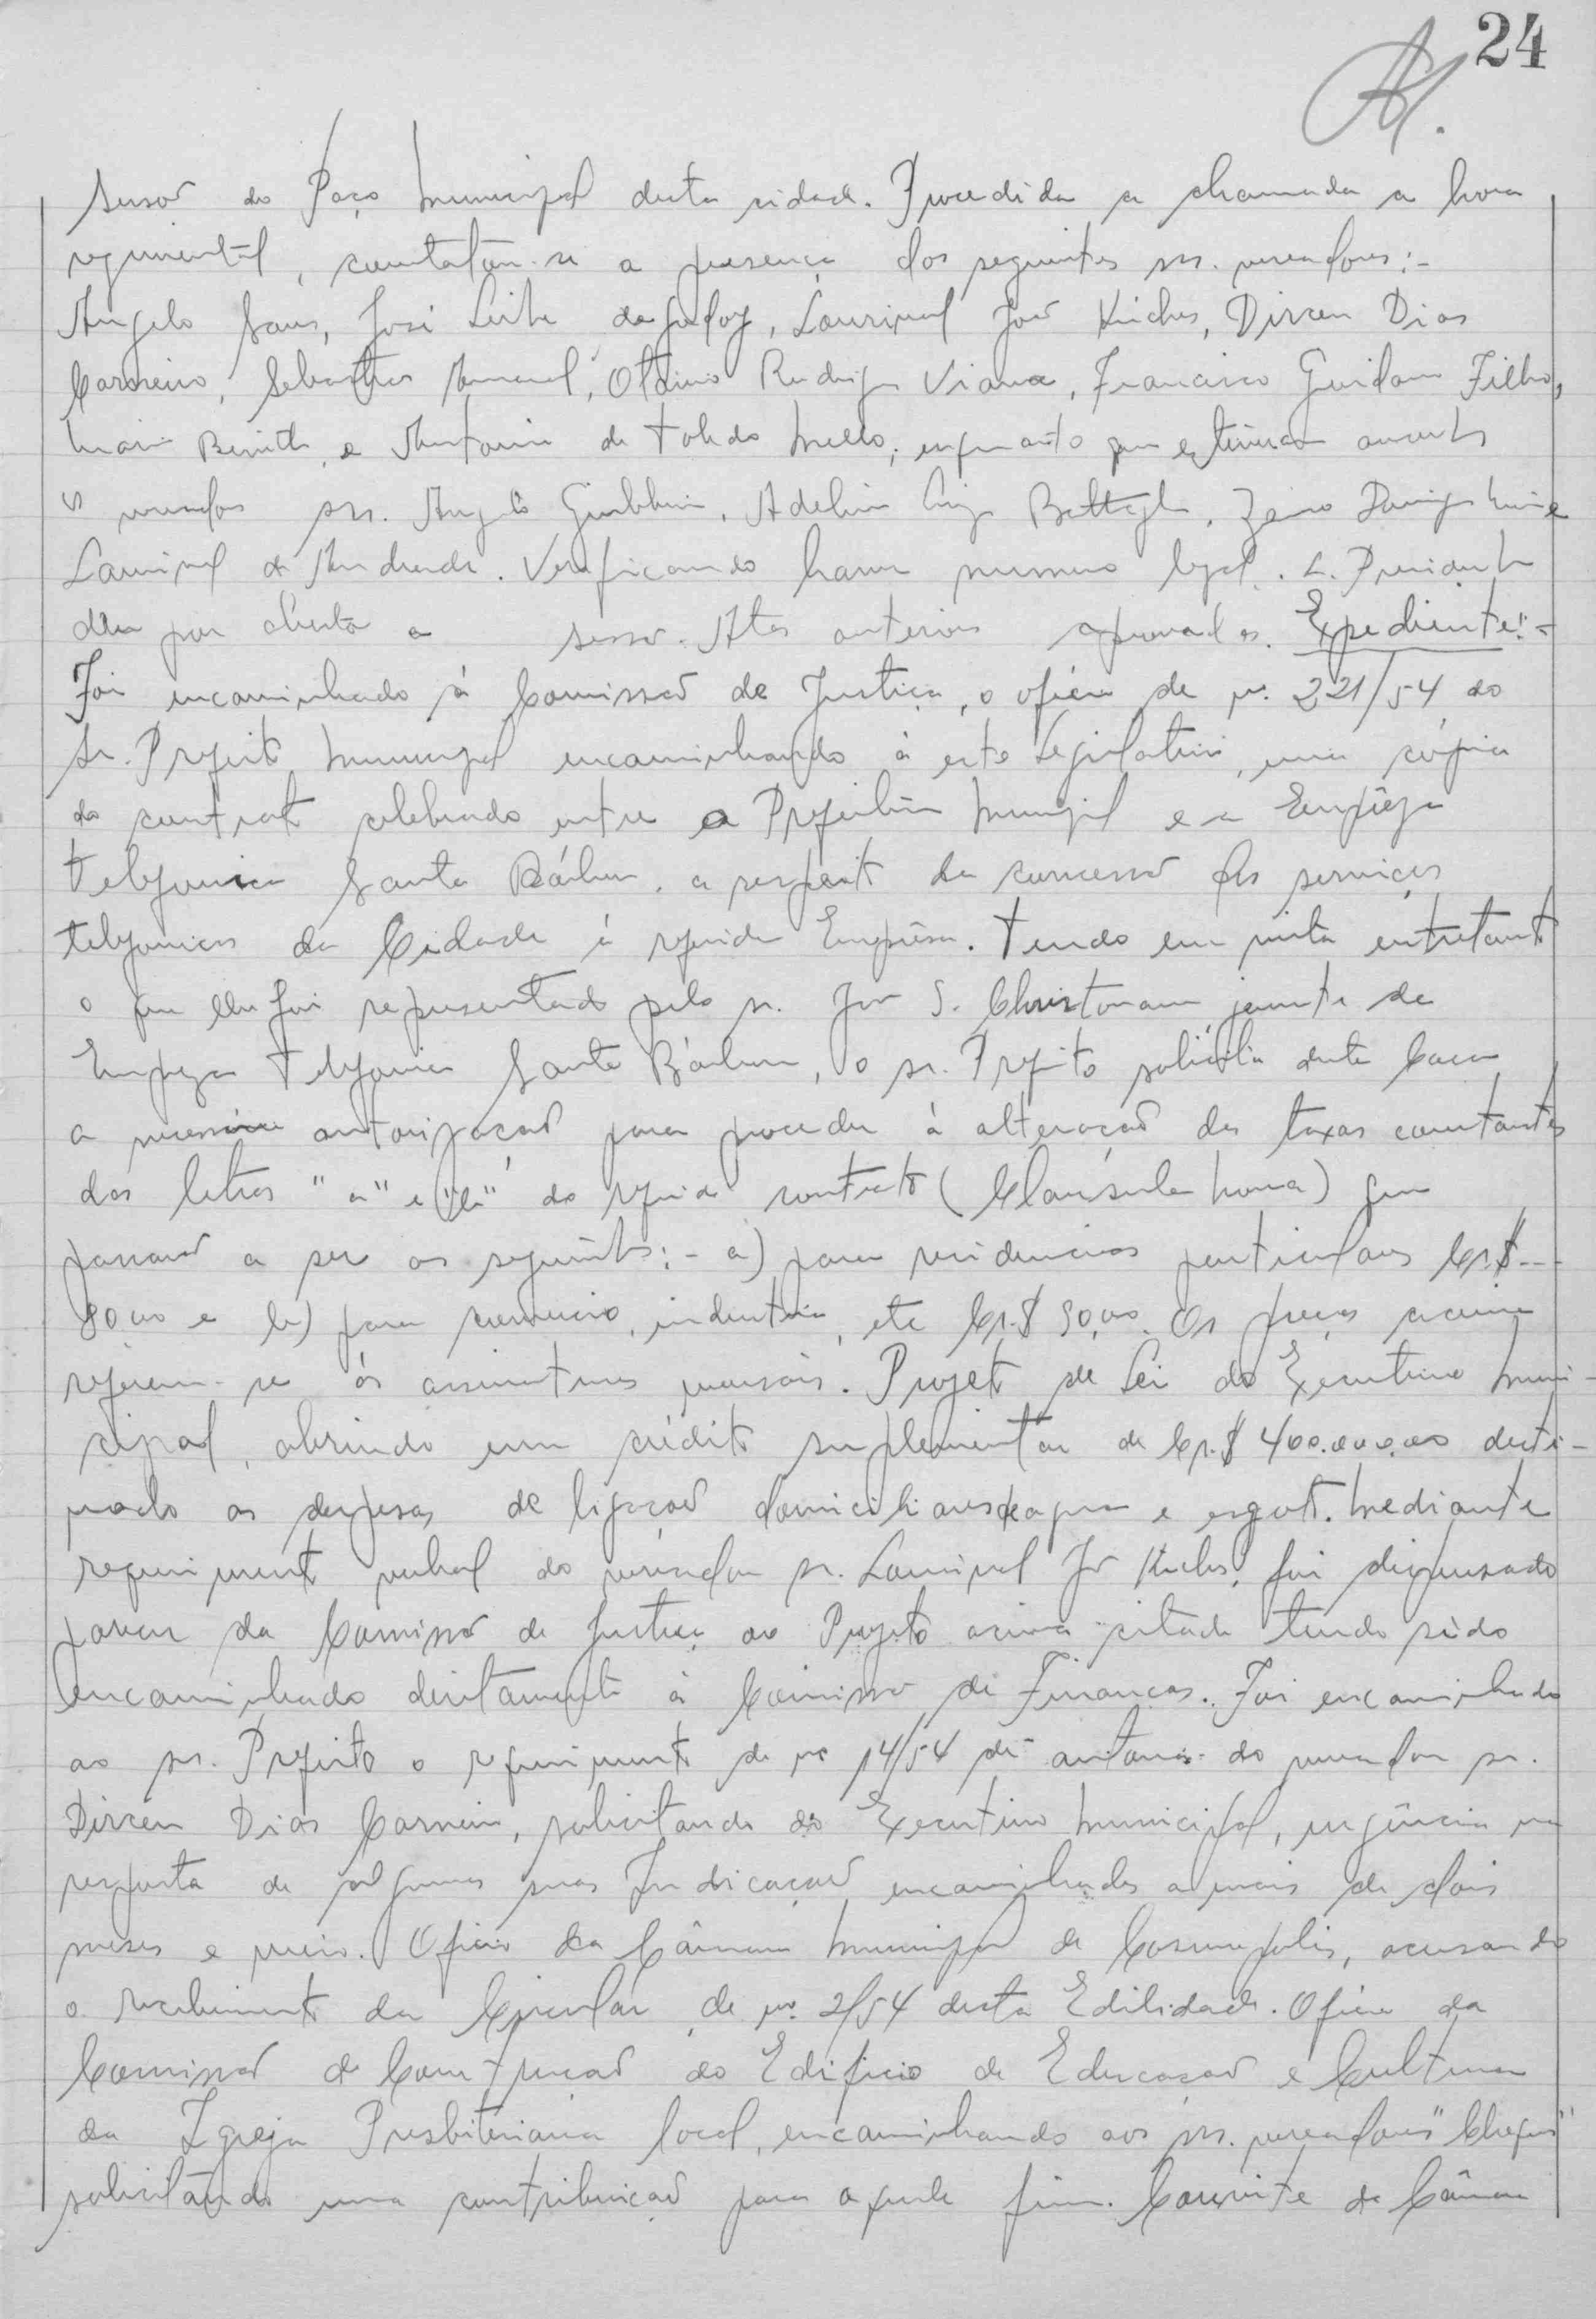 24
sessão do Paço Municipal desta cidade. Procedida a chamada a hora
regimental, constatou-se a presença dos seguintes srs. vereadores:-
Angelo Sans, José Leite de Godoy, Lourival José Kiches, Dirceu Dias
Carneiro, Sebastião, Otavio Rodrigues Viana, Francisco Guidam Filho,
Mario e Antonio de Toledo Mello, enquanto que estiveram ausentes
os vereadores srs. Angelo Giubbina, Adelino Luiz Battagli,
Lourival de Andrade. Verificando haver numero legal. S. Presidente
deu por aberta a sessão. Atas anteriores aprovadas. Expediente:-
Foi encaminhado à Comissão de Justiça, o oficio de nº 221/54 do
Sr. Prefeito Municipal encaminhando à este Legislativo, uma cópia
do contrato celebrado entre a Prefeitura Municipal e a Emprêza
Telefonica Santa Bárbara, a respeito da concessão dos serviços
telefonicos da Cidade à referida Emprêsa. Tendo em vista entretanto
o que lhe foi representado pelo sr. José S. Christovam gerente da
Empreza Telefonica Santa Bárbara, o sr. Prefeito solicita desta Casa
a necessária autorização para proceder à alteração das taxas constantes
das letras "a" e "b" do referido contrato (Cláusula nona) que
passarão a ser as seguintes:- a) para residencias particulares Cr.$---
80,00 e b) para comercio, industria, etc Cr.$ 90,00. Os preços acima
referem-se às assinaturas mensais. Projeto de Lei do Executivo Muni-
cipal, abrindo um crédito suplementar de Cr.$ 400.000,00 desti-
nado as despesas de ligação domiciliares de agua e esgoto. Mediante
requerimento verbal do vereador sr. Lourival José Kiches, foi dispensado
parecer da Comissão de Justiça ao Projeto acima citado tendo sido
encaminhado diretamente à Comissão de Finanças. Foi encaminhado
ao sr. Prefeito o requerimento de nº 14/54 de autoria do vereador sr.
Dirceu Dias Carneiro, solicitando do Executivo Municipal, urgência na
resposta de algumas suas Indicações encaminhadas a mais de dois
meses e meio. Oficio da Câmara Municipal de Cosmopolis, acusando
o recebimento da Circular de nº 2/54 desta Edilidade. Oficio da
Comissão de Construção do Edificio de Educação e Cultura
da Igreja Presbiteriana local, encaminhando aos srs. vereadores "Cheques"
solicitando uma contribuição para aquele fim. Convite da Câmara